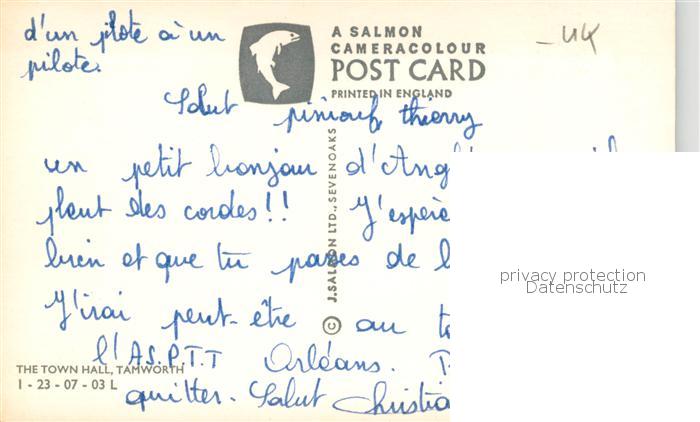 d'un pilote à un
pilote.
A SALMON
CAMERACOLOUR
POST CARD
PRINTED IN ENGLAND
UK
Salut thierry
un petit bonjour d'Angl
pleut des cordes!! J'espère
bien et que tu passes de b
J'irai peut-être au t
l'A.S.P.T.T Orléans.
quitter. Salut Christia
© J.SALMON LTD., SEVENOAKS
THE TOWN HALL, TAMWORTH
1 - 23 - 07 - 03 L
privacy protection
Datenschutz